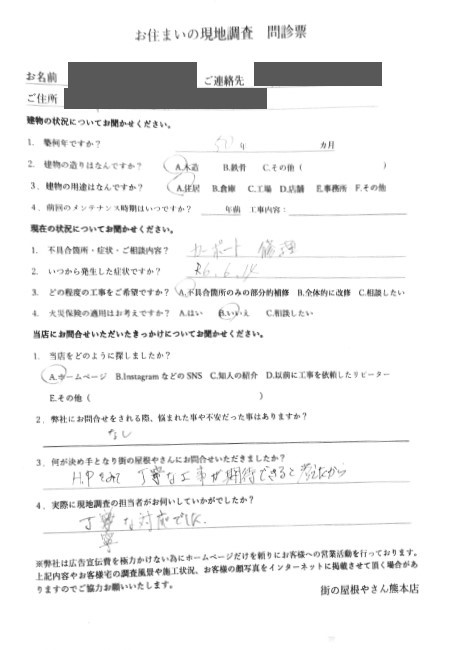 お住まいの現地調査 問診票
お名前
ご連絡先
ご住所
建物の状況についてお聞かせください。
1. 築何年ですか? 50年 カ月
2. 建物の造りはなんですか? A.木造 B.鉄骨 C.その他 ( )
3. 建物の用途はなんですか? A.住居 B.倉庫 C.工場 D.店舗 E.事務所 F.その他
4. 前回のメンテナンス時期はいつですか? 年前 工事内容:
現在の状況についてお聞かせください。
1. 不具合箇所・症状・ご相談内容? カーポート 修理
2. いつから発生した症状ですか? R6.6.14
3. どの程度の工事をご希望ですか? A.不具合箇所のみの部分的補修 B.全体的に改修 C.相談したい
4. 火災保険の適用はお考えですか? A.はい B.いいえ C.相談したい
当店にお問合せいただいたきっかけについてお聞かせください。
1. 当店をどのように探しましたか?
A.ホームページ B.InstagramなどのSNS C.知人の紹介 D.以前に工事を依頼したリピーター
E.その他 ( )
2. 弊社にお問合せをされる際、悩まれた事や不安だった事はありますか?
なし
3. 何が決め手となり街の屋根やさんにお問合せいただきましたか?
H.Pをみて 丁寧な工事が期待できると考えたから
4. 実際に現地調査の担当者がお伺いしていかがでしたか?
丁寧な対応でした.
寧
※弊社は広告宣伝費を極力かけない為にホームページだけを頼りにお客様への営業活動を行っております。
上記内容やお客様宅の調査風景や施工状況、お客様の顔写真をインターネットに掲載させて頂く場合があ
りますのでご協力お願いいたします。
街の屋根やさん熊本店